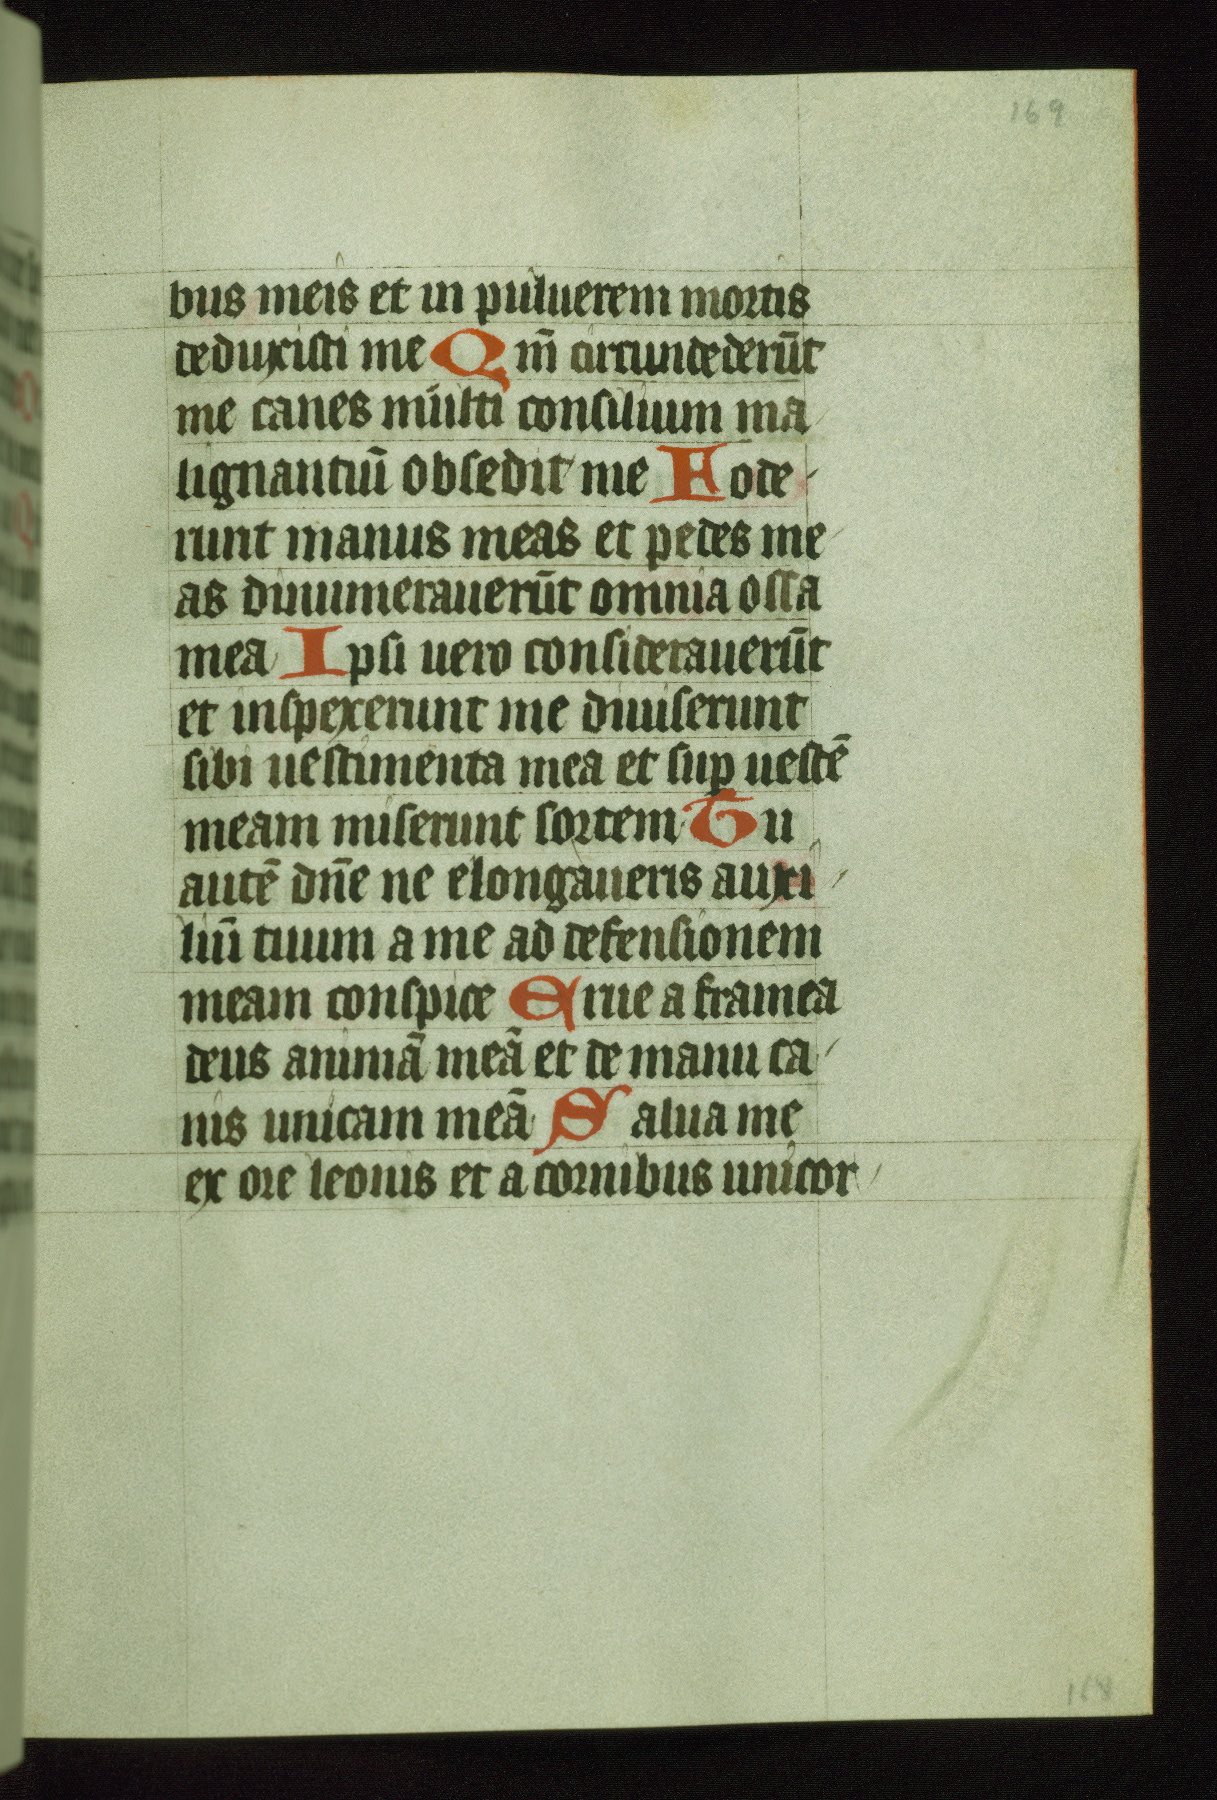 169
bus meis et in puluerem mortis
deduxisti me Qm̄ circundederūt
me canes multi consilium ma
lignantiū obsedit me Fode
runt manus meas et pedes me
as dinumerauerūt omnia ossa
mea Ipsi uero considerauerūt
et inspexerunt me diuiserunt
sibi uestimenta mea et suꝑ uestē
meam miserunt sortem Tu
autē dn̄e ne elongaueris auxi
liū tuum a me ad defensionem
meam conspice Erue a framea
deus animā meā et de manu ca
nis unicam meā Salua me
ex ore leonis et a cornibus unicor
168